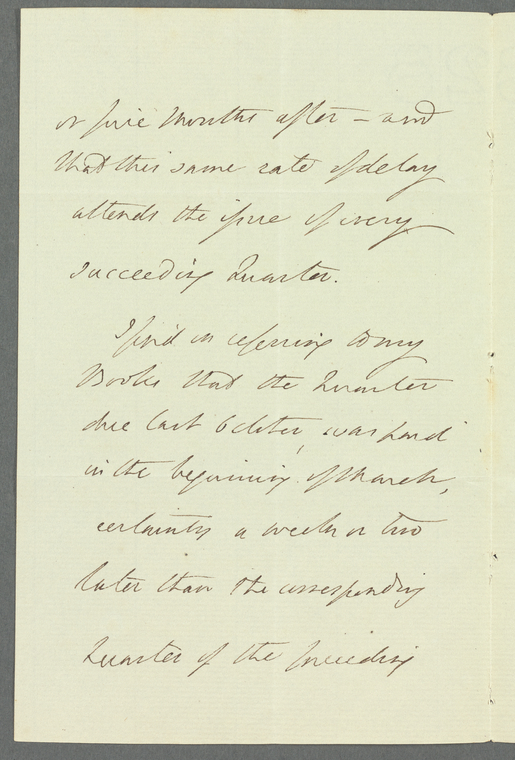 or five months after – and
that this same rate of delay
attends the issue of every
succeeding Quarter.
I find in referring to my
Books that the Quarter
due last October, was paid
in the beginning of March,
certainly a week or two
later than the corresponding
Quarter of the preceding